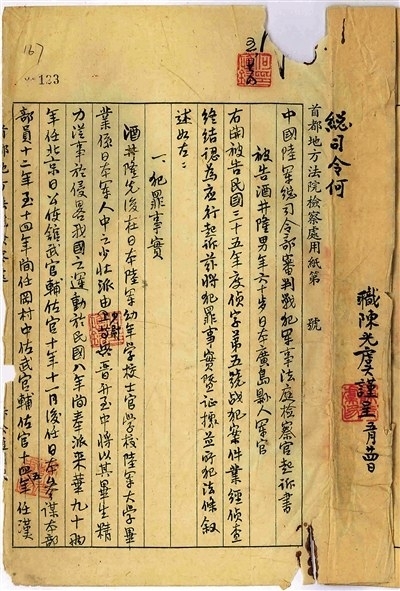 總司令何
職陳光虞謹呈 五月廿四日
首都地方法院檢察處用紙第 號
中國陸軍總司令部審判戰犯軍事法庭檢察官起訴書
被告酒井隆男年六十歲日本廣島縣人軍官
右開被告民國三十五年度偵字第五號戰犯案件業經偵查
終結認為應行起訴茲將犯罪事實暨證據並所犯法條叙
述如左：
一、犯罪事實
酒井隆先後在日本陸軍幼年學校士官學校陸軍大學畢
業係日本軍人中之少壯派由少尉晉升至中將以其畢生精
力從事於侵畧我國之運動於民國八年間奉派來華九十兩
年任北京日公使館武官輔佐官十年十一月後任日本參謀本部
部員十二年至十四年間任岡村中佐武官輔佐官十四年五任漢
167
133